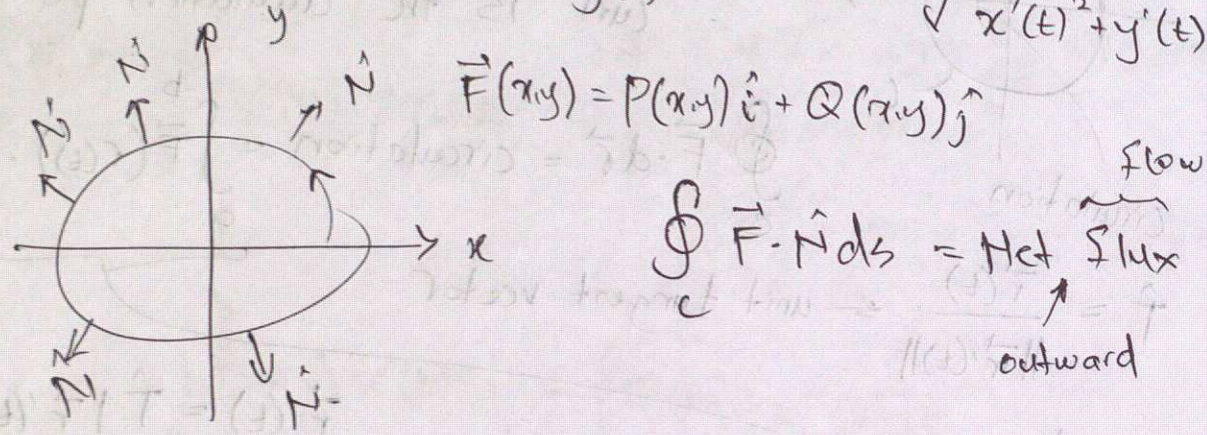 y
√ x'(t)² + y'(t)
N̂
N̂
F⃗(x,y) = P(x,y) î + Q(x,y) ĵ
N̂
flow
x
∮_C F⃗ · N̂ ds = Net flux
outward
N̂
N̂